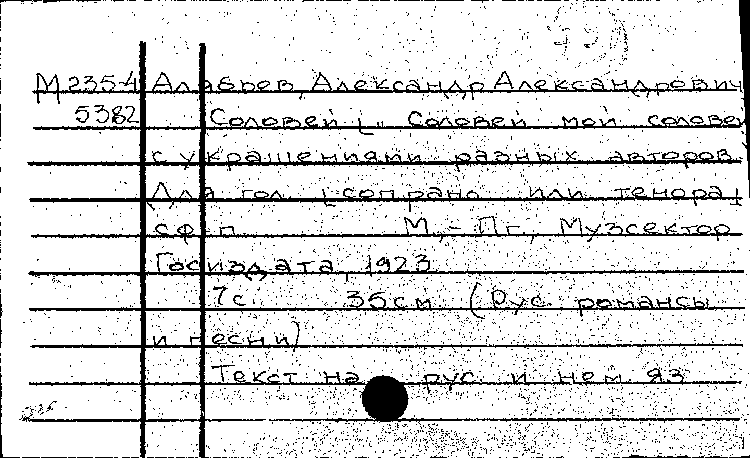 М 235-4 Алябьев, Александр Александрович
5382 Соловей [„Соловей мой солове
с украшениями разных авторов.
Для гол. [сопрано или тенора]
с ф-п. М.-Пг., Музсектор
Госиздата, 1923.
7с. 35см (Рус. романсы
и песни)
Текст на рус. и нем. яз.